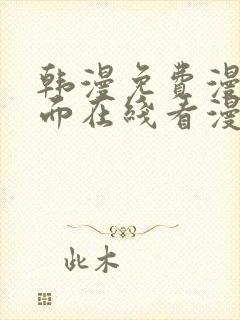 韩漫免费漫
而在线看漫
此木